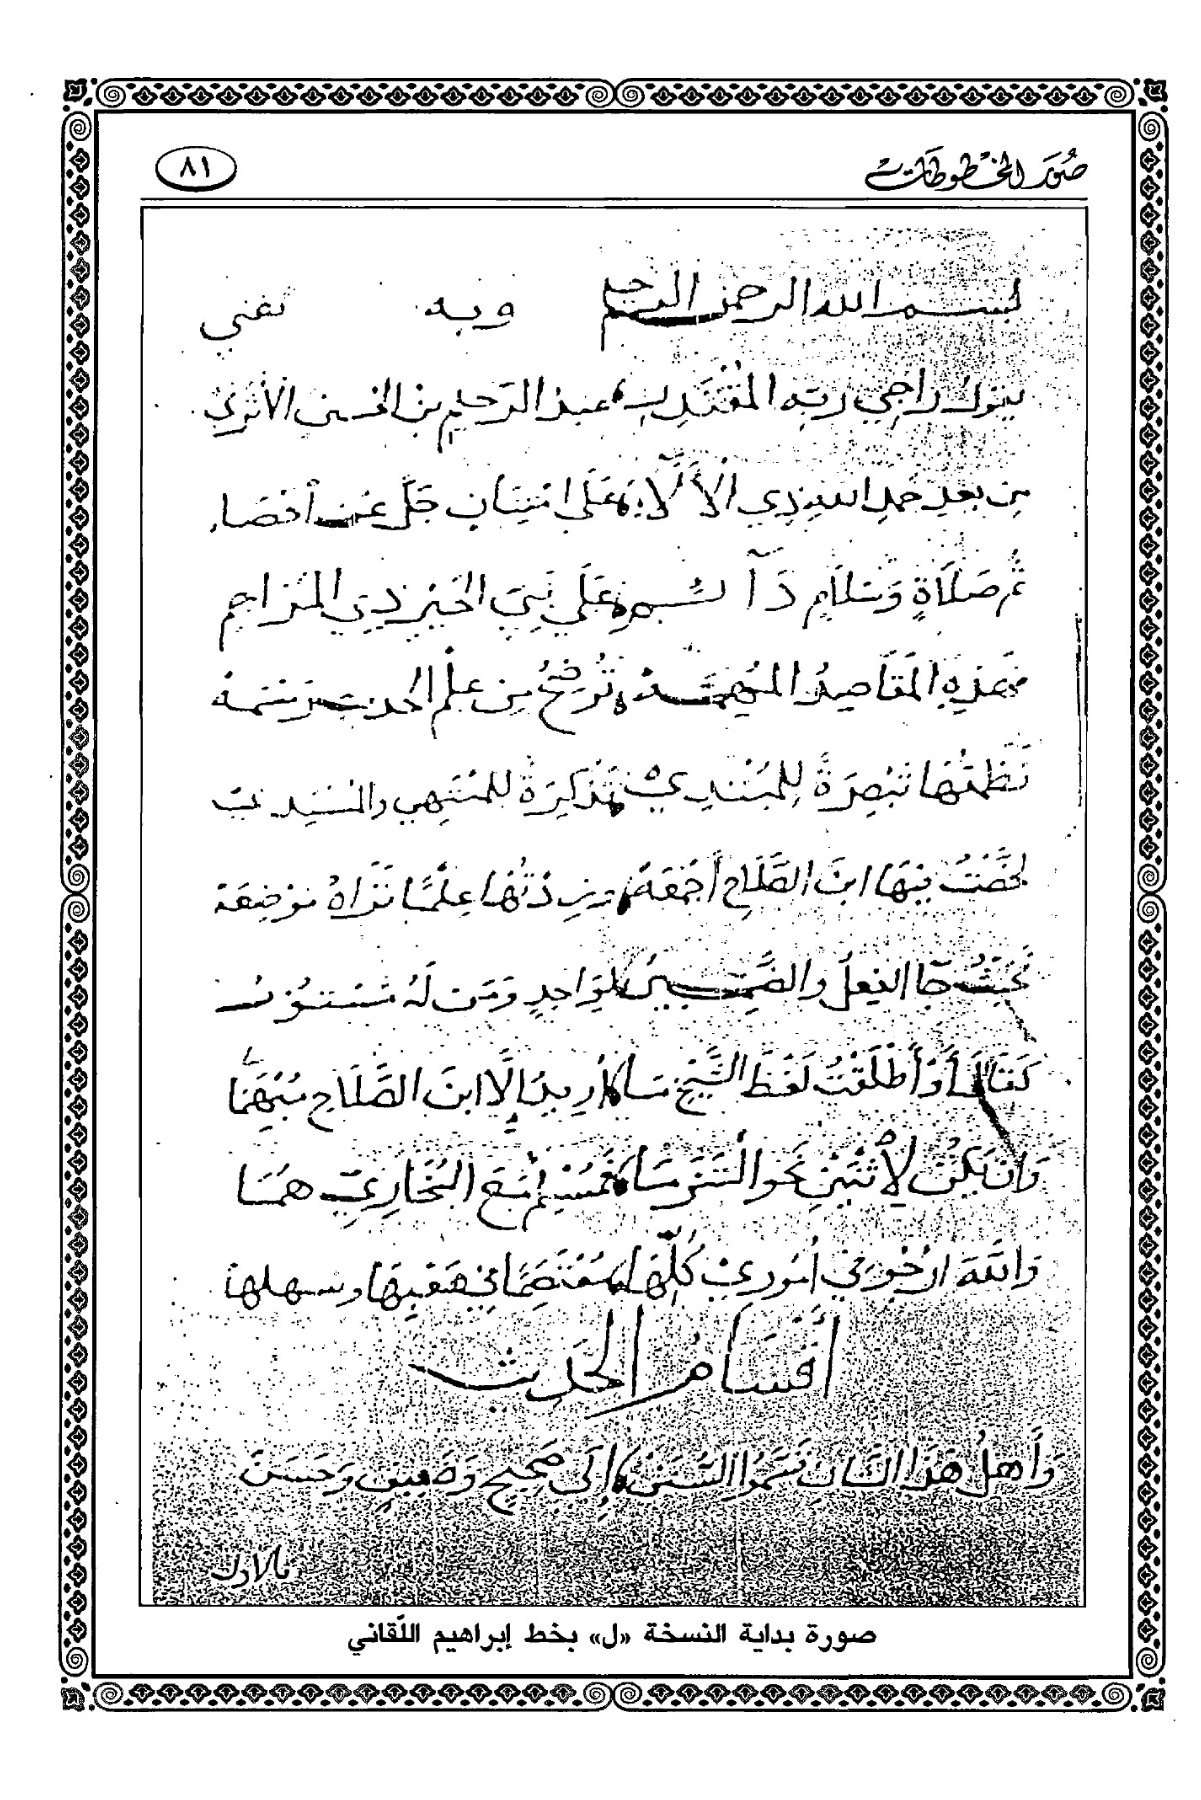 صور المخطوطات
٨١
بسم الله الرحمن الرحيم وبه ثقتي
يقول راجي ربه المقتدر عبد الرحيم بن الحسين الأثري
من بعد حمد الله ذي الآلاء على امتنان جل عن احصاء
ثم صلاة وسلام دائم على نبي الخير ذي المراحم
فهذه المقاصد المهمة توضح من علم الحديث رسمه
نظمتها تبصرة للمبتدي تذكرة للمنتهي والمسند
لخصت فيها ابن الصلاح أجمعه وزدتها علما تراه موضعه
فحيث جا الفعل والضمير لواحد ومن له مستور
كقال أو أطلقت لفظ الشيخ ما أريد إلا ابن الصلاح مبهما
وان يكن لاثنين نحو التزما فمسلم مع البخاري هما
والله ارجو في أموري كلها معتصما في صعبها وسهلها
أقسام الحديث
وأهل هذا الشان قسموا السنن إلى صحيح وضعيف وحسن
فالاول
صورة بداية النسخة «ل» بخط إبراهيم اللّقاني